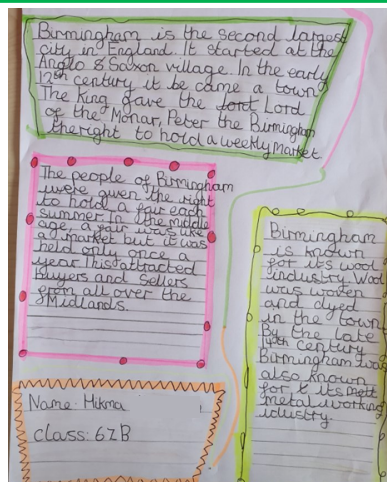 Birmingham is the second largest
city in England. It started at the
Anglo & Saxon village. In the early
12th century it be came a town
The King gave the Lord
of the Monar, Peter the Birmingham
theright to hold a weekly Market
The people of Birmingham
were given the right
to hold a fair each
summer. In the middle
age, a fair was like
a market but it was
held only once a
year. This attracted
Buyers and Sellers
from all over the
Midlands.
Birmingham
is known
for its wool
industry. Wool
was woven
and dyed
in the town
By the late
14th century
Birmingham was
also known
for its
metal working
idustry.
Name: Hikma
class: 6ZB